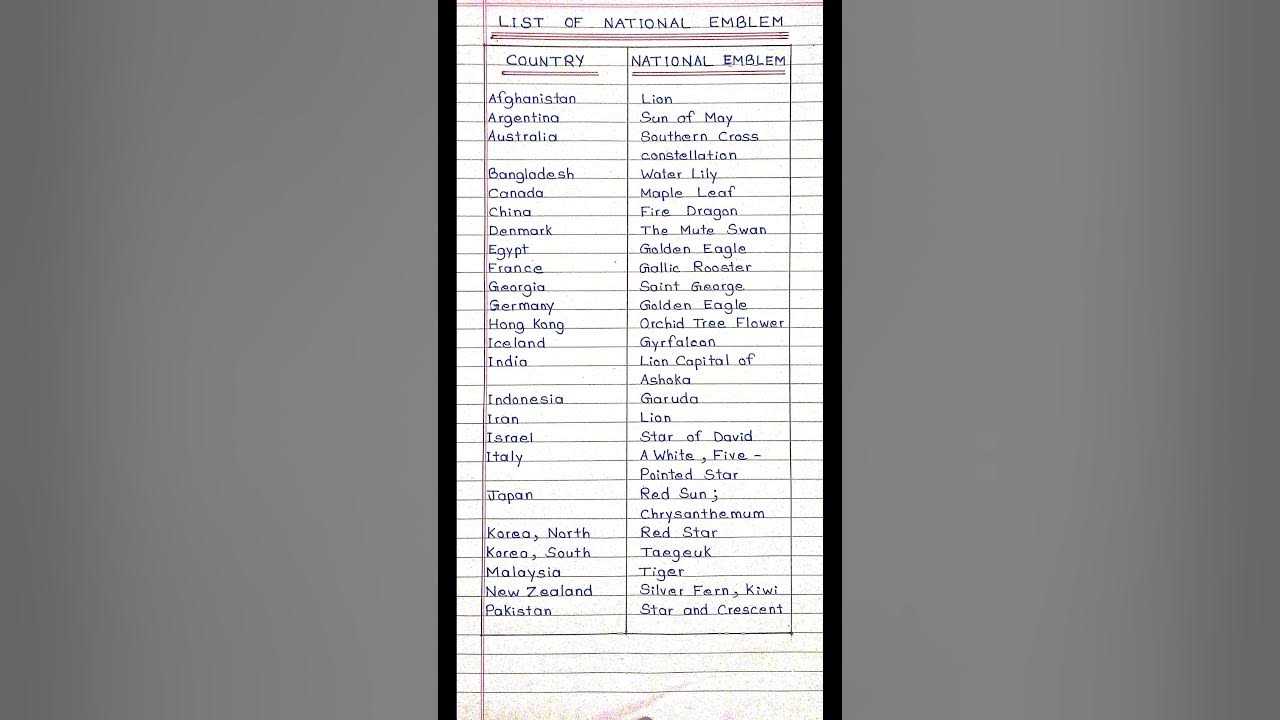 LIST OF NATIONAL EMBLEM
COUNTRY NATIONAL EMBLEM
Afghanistan Lion
Argentina Sun of May
Australia Southern Cross
constellation
Bangladesh Water Lily
Canada Maple Leaf
China Fire Dragon
Denmark The Mute Swan
Egypt Golden Eagle
France Gallic Rooster
Georgia Saint George
Germany Golden Eagle
Hong Kong Orchid Tree Flower
Iceland Gyrfalcon
India Lion Capital of
Ashoka
Indonesia Garuda
Iran Lion
Israel Star of David
Italy A White, Five -
Pointed Star
Japan Red Sun;
Chrysanthemum
Korea, North Red Star
Korea, South Taegeuk
Malaysia Tiger
New Zealand Silver Fern, Kiwi
Pakistan Star and Crescent